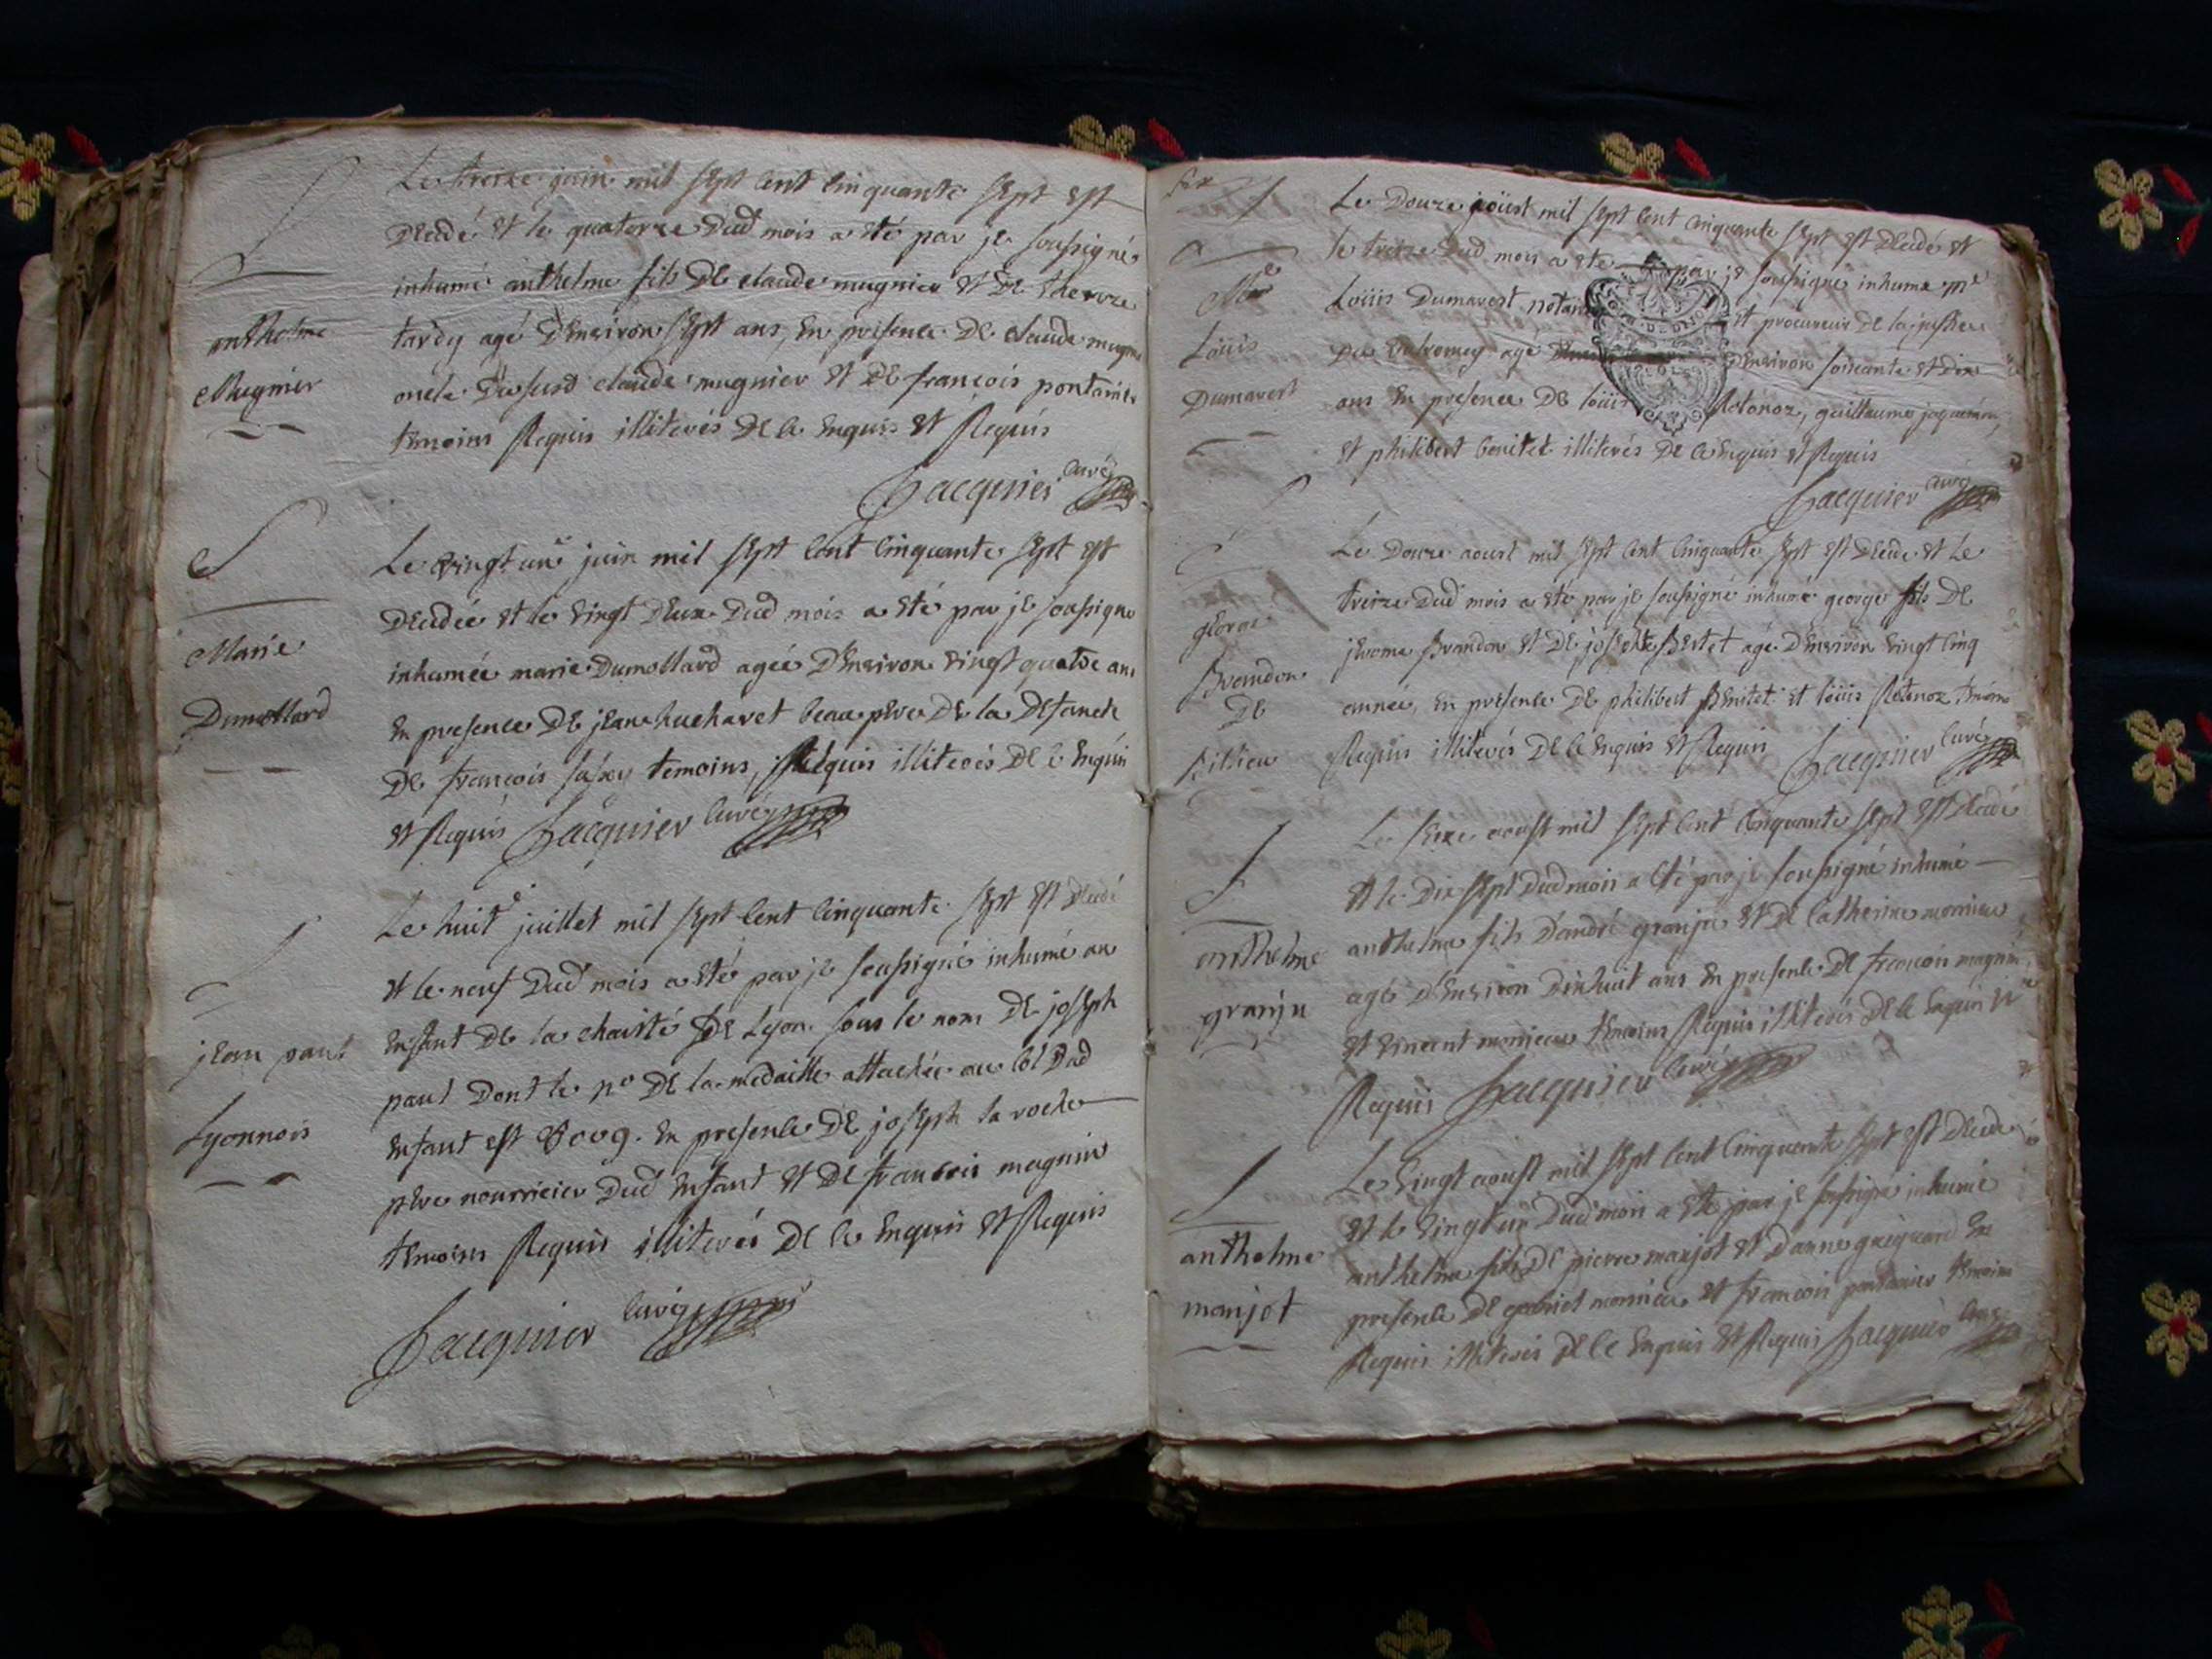 S
anthelme
Mugnier
Le treize juin mil sept cent cinquante sept est
decedé et le quatorze dud mois a eté par je soussigné
inhumé anthelme fils de claude mugnier et de therese
tardy agé d'environ sept ans, en presence de claude mugnier
oncle dususd claude mugnier et de françois pontanier
temoins Requis illiterés de ce enquis et Requis
Jacquier curé
S
Marie
Dumollard
Le vingt un juin mil sept cent cinquante sept est
decedée et le vingt deux dud mois a eté par je soussigné
inhumée marie Dumollard agée d'environ vingt quatre ans
en presence de jean huchavet beau pere de la defuncte
de françois temoins, Requis illiterés de ce enquis
et Requis Jacquier curé
S
jean paul
Lyonnois
Le huit juillet mil sept cent cinquante sept est decedé
et le neuf dud mois a eté par je soussigné inhumé un
enfant de la charité de Lyon sous le nom de joseph
paul dont le no de la medaille attachée au col dud
enfant est 8009. en presence de joseph la roche
pere nourricier dud enfant et de françois magnin
temoins Requis illiterés de ce enquis et Requis
Jacquier curé
S
Me
Loüis
Dumarest
Le douze aoust mil sept cent cinquante sept est decedé et
le treize dud mois a eté par je soussigné inhumé me
Loüis Dumarest notaire et procureur de la justice
du valromey agé d'environ soixante et dix
ans en presence de loüis Retonoz, guillaume
et philibert benitet illiterés de ce enquis et Requis
Jacquier curé
george
Brandon
de
Le douze aoust mil sept cent cinquante sept est decedé et le
treize dud mois a eté par je soussigné inhumé george fils de
jerome Brandon et de josephte Bertet agé d'environ vingt cinq
année, en presence de philibert Benitet et loüis Retonoz temoins
Requis illiterés de ce enquis et Requis Jacquier curé
S
anthelme
granju
Le seize aoust mil sept cent cinquante sept est decedé
et le dix sept dud mois a eté par je soussigné inhumé
anthelme fils d'andré granju et de Catherine monnieu
agé d'environ dixhuit ans en presence de françois magnin
et vincent monnieu temoins Requis illiterés de ce enquis et
Requis Jacquier curé
S
anthelme
monjot
Le vingt aoust mil sept cent cinquante sept est decedé
et le vingt un dud mois a eté par je soussigné inhumé
anthelme fils de pierre monjot et d'anne guiguard en
presence de gabriel monnieu et françois pontanier temoins
Requis illiterés de ce enquis et Requis Jacquier curé